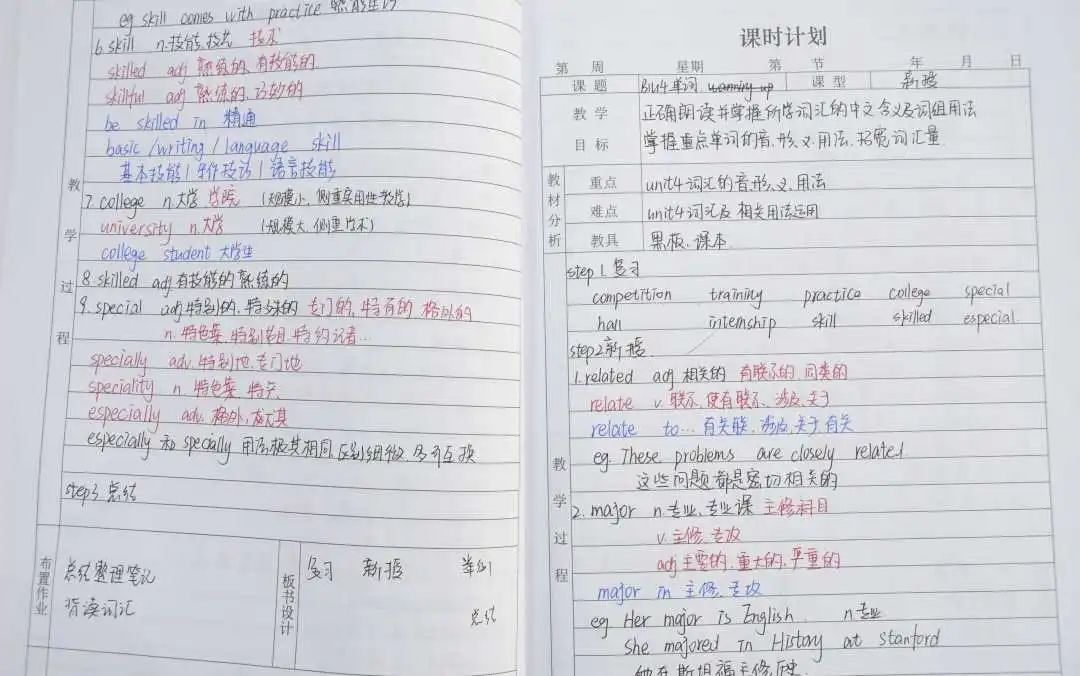 eg skill comes with practice 熟能生巧
6. skill n.技能,技术 技术
skilled adj 熟练的,有技能的
skillful adj 熟练的,巧妙的
be skilled in 精通
basic / writing / language skill
基本技能 | 写作技能 | 语言技能
7. college n.大学 学院 (规模小,侧重实用性教学)
university n.大学 (规模大,侧重学术)
college student 大学生
8. skilled adj.有技能的 熟练的
9. special adj.特别的,特殊的 专门的,特有的 格外的
n. 特色菜,特别节目,特约记者…
specially adv.特别地,专门地
speciality n. 特色菜 特产
especially adv. 格外,尤其
especially 和 specially 用法极其相同,区别细微,多可互换
step3 总结
教学过程
布置作业
总结整理笔记
背诵词汇
板书设计
复习 新授 举例
总结
课时计划
第 周 星期 第 节 年 月 日
课题 Bu4单词 warming up 课型 新授
教学目标 正确朗读并掌握所学词汇的中文含义及词组用法
掌握重点单词的音.形.义.用法.拓宽词汇量
教材分析
重点 unit4词汇的音.形.义.用法
难点 unit4词汇及相关用法运用
教具 黑板.课本
step 1 复习
competition training practice college special
hall internship skill skilled especial
step2 新授
1. related adj 相关的 有联系的,同类的
relate v.联系,使有联系,涉及,关于
relate to… 有关联,涉及,关于有关
eg. These problems are closely related
这些问题都是密切相关的
教学过程
2. major n.专业,专业课 主修科目
v.主修,专攻
adj 主要的,重大的,严重的
major in 主修,专攻
eg Her major is English n专业
She majored in History at Stanford
她在斯坦福主修历史